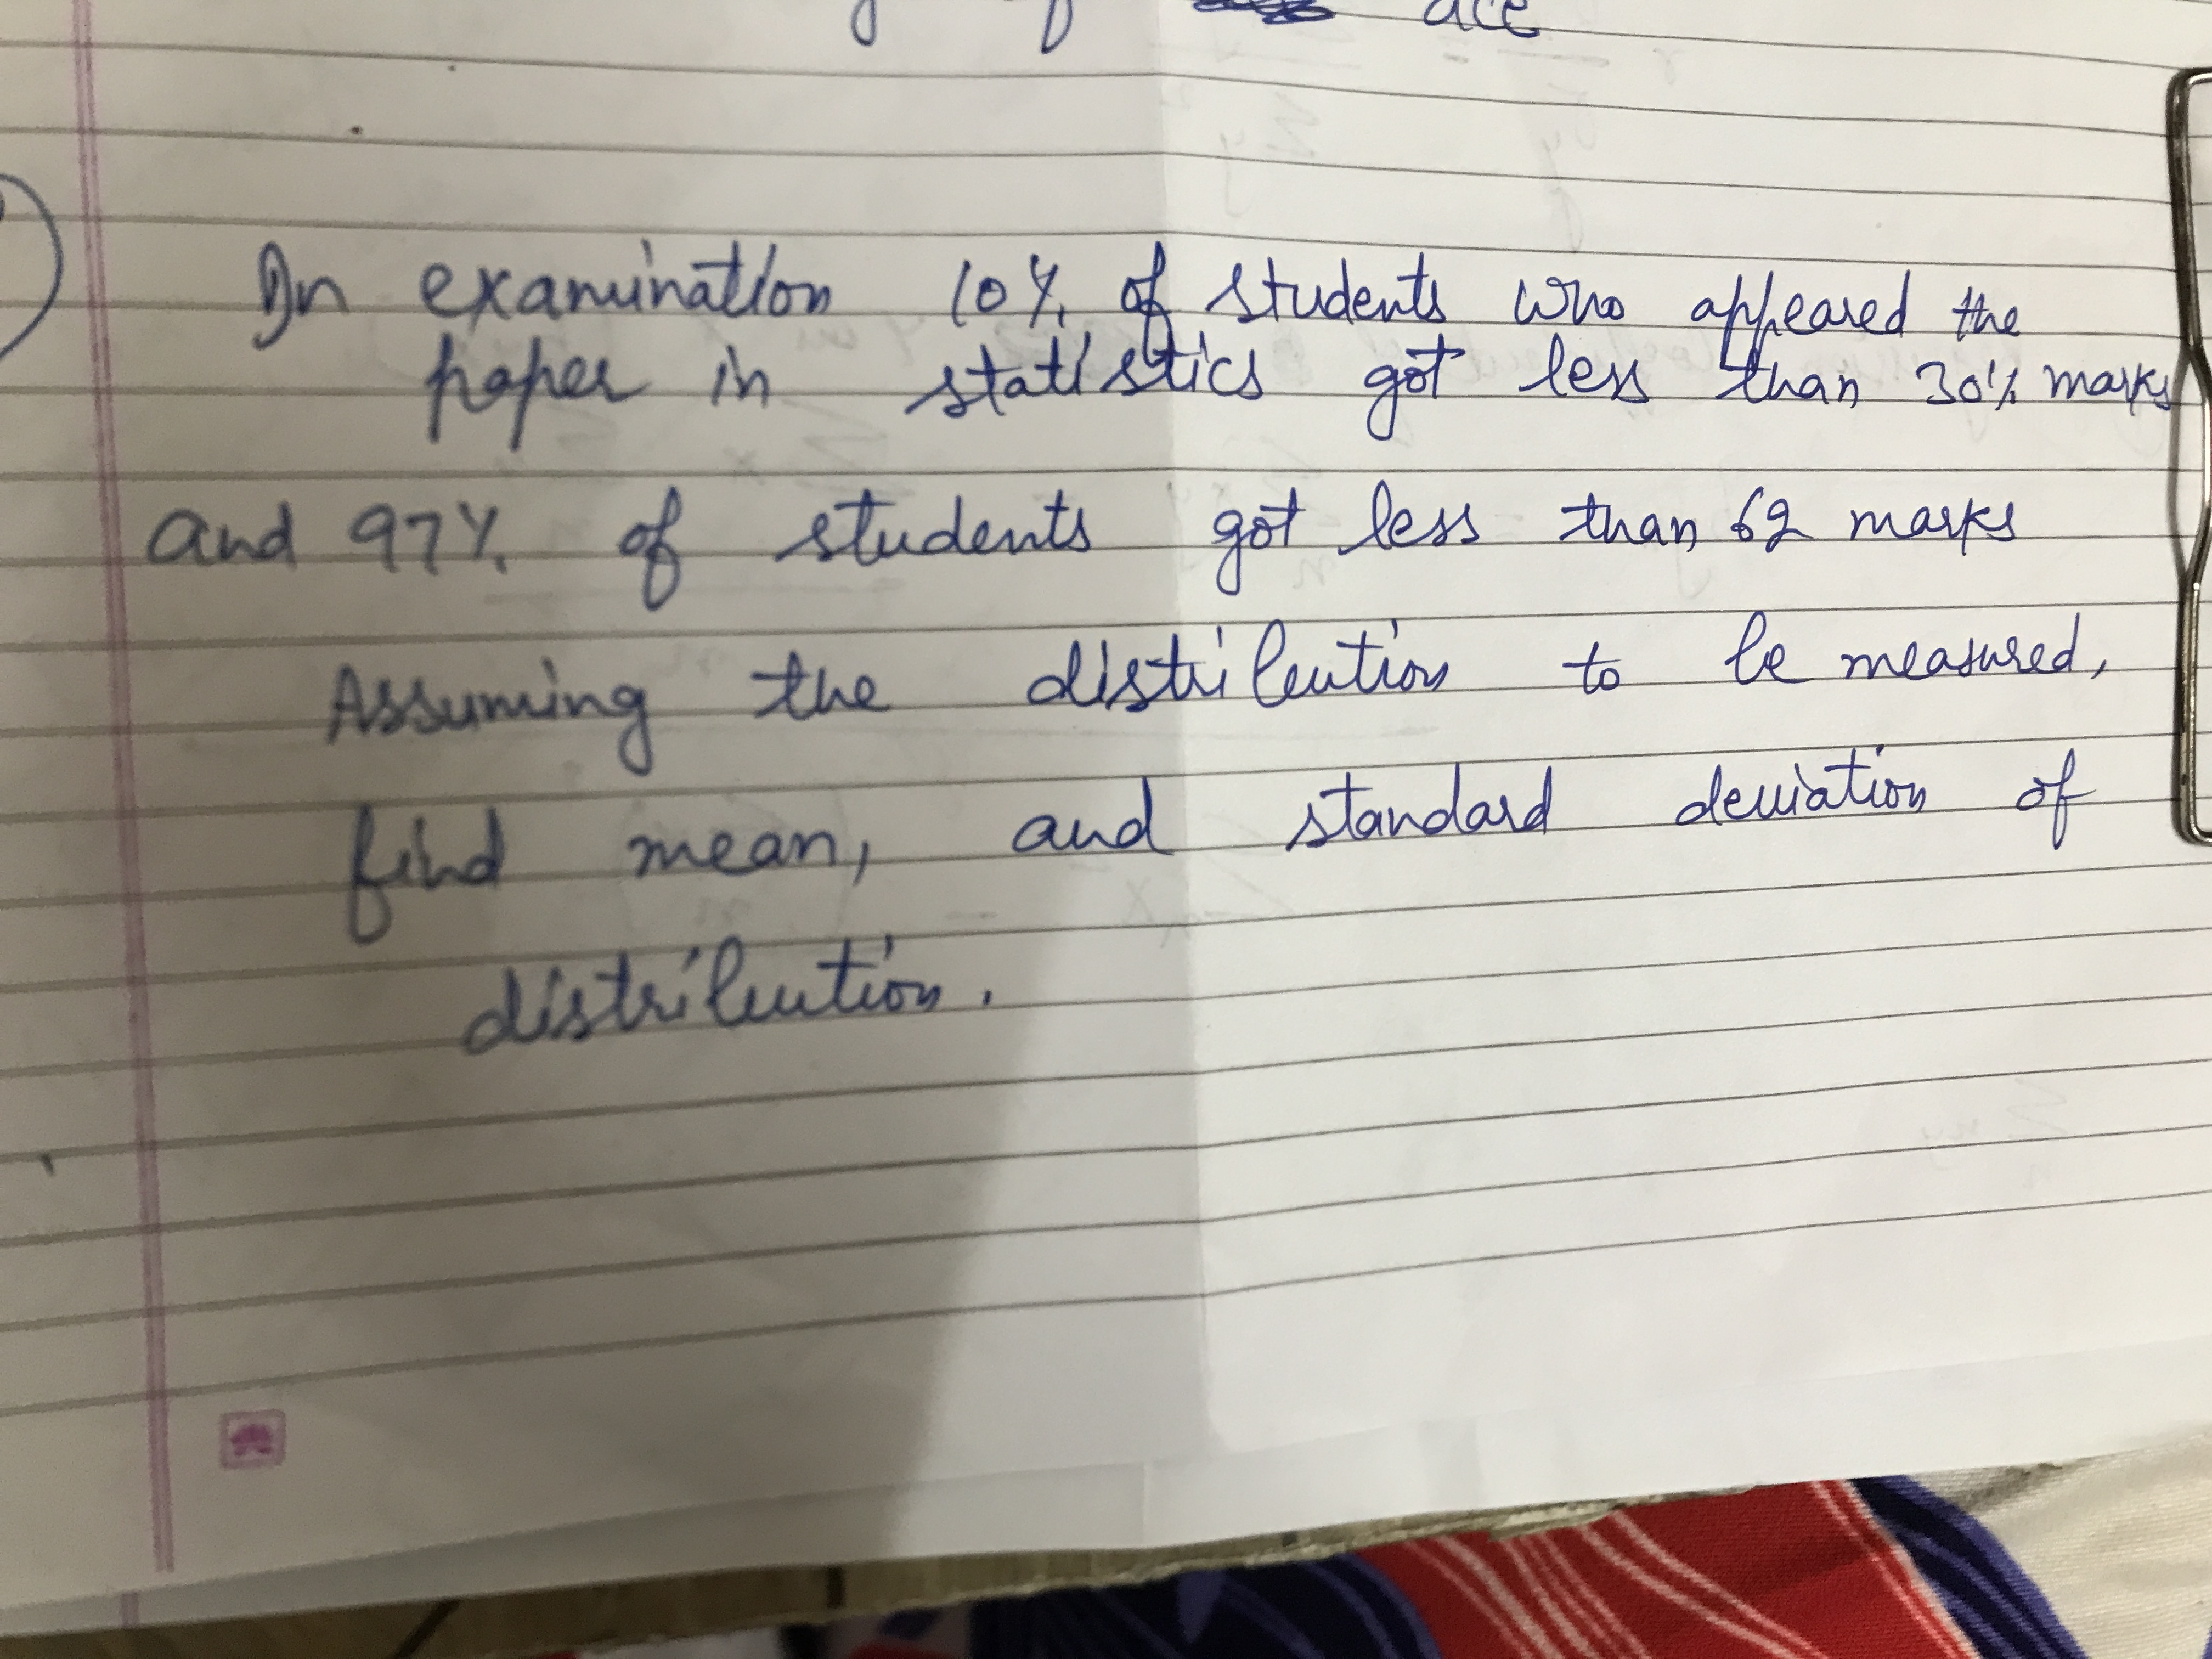 In examination 10% of students who appeared the
paper in statistics got less than 30% marks
and 97% of students got less than 62 marks
Assuming the distribution to be measured,
find mean, and standard deviation of
distribution.